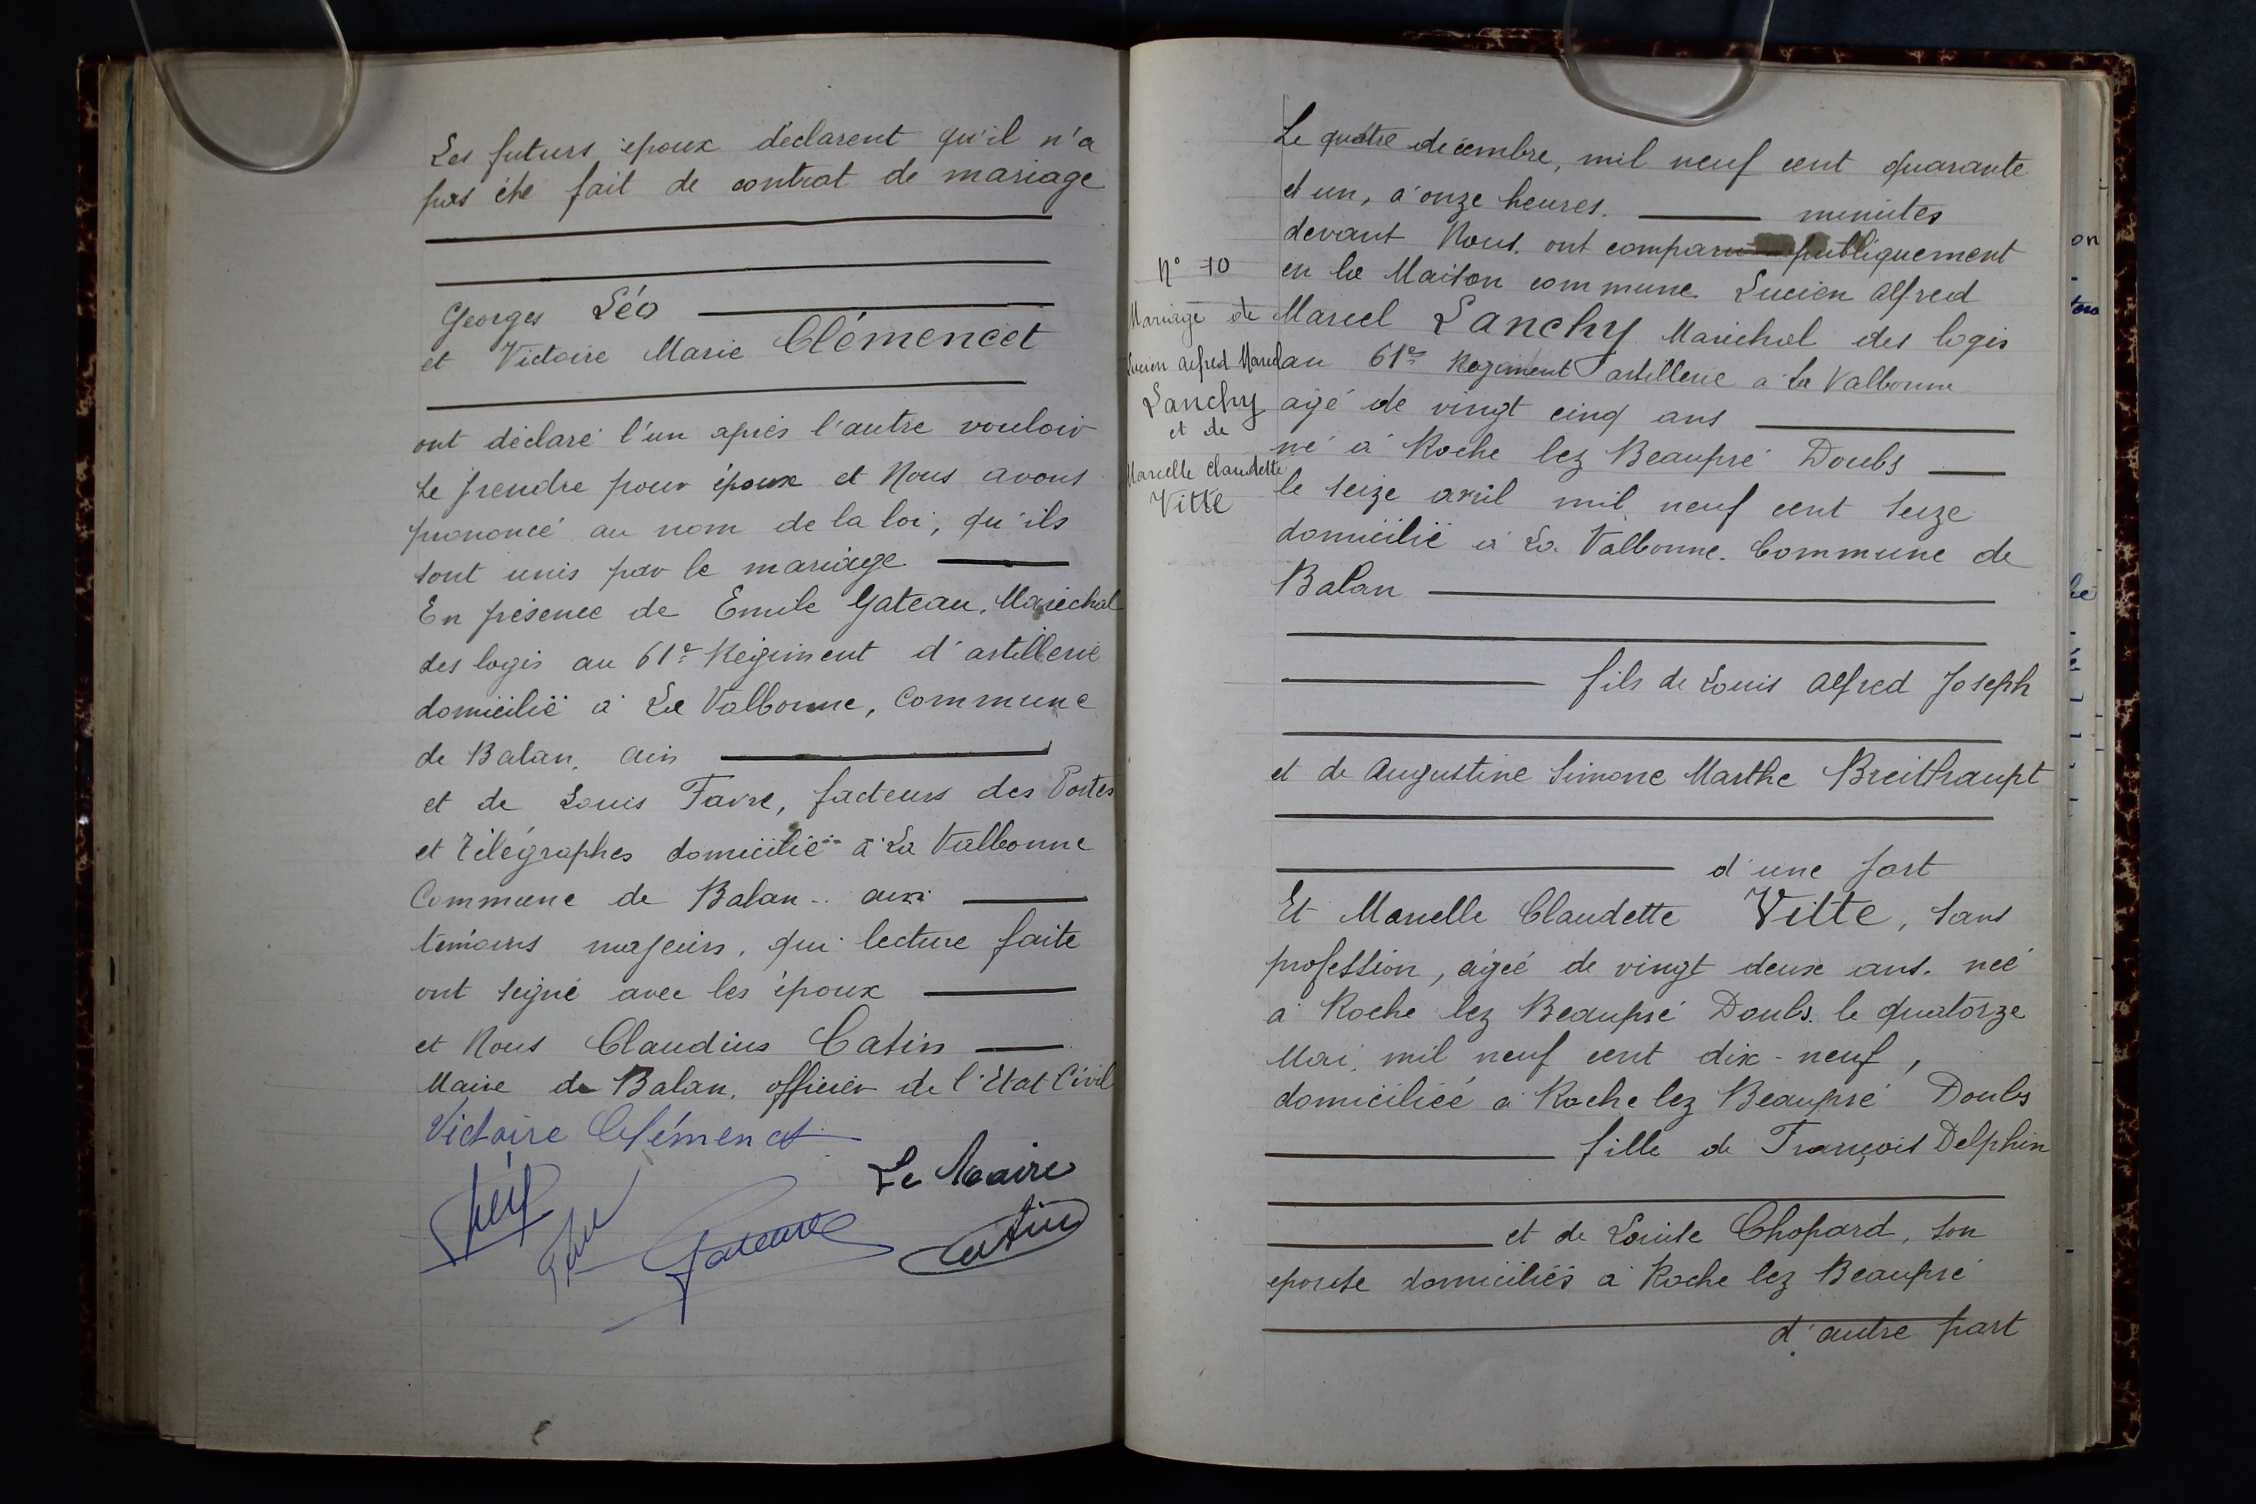 Les futurs époux déclarent qu'il n'a
pas été fait de contrat de mariage
Georges Léo
et Victoire Marie Clémencet
ont déclaré l'un après l'autre vouloir
se prendre pour époux et Nous avons
prononcé au nom de la loi, qu'ils
sont unis par le mariage
En présence de Emile Gateau, Maréchal
des logis au 61e Régiment d'artillerie
domicilié à La Valbonne, Commune
de Balan, ain
et de Louis Favre, facteurs des Postes
et Télégraphes domicilié à La Valbonne
Commune de Balan
témoins majeurs, qui lecture faite
ont signé avec les époux
et Nous Claudius Catin
Maire de Balan, officier de l'Etat Civil
Victoire Clémencet
Le Maire
Catin
Gateau
N° 10
Mariage de
Lucien Alfred Marcel
Lanchy
et de
Marcelle Claudette
Vitte
Le quatre décembre, mil neuf cent quarante
et un, à onze heures. minutes
devant Nous, ont comparu publiquement
en la Maison commune Lucien Alfred
Marcel Lanchy Maréchal des logis
au 61e Régiment artillerie à La Valbonne
agé de vingt cinq ans
né à Roche lez Beaupré Doubs
le seize avril mil neuf cent seize
domicilié à La Valbonne. Commune de
Balan
fils de Louis Alfred Joseph
et de Augustine Simone Marthe Breithaupt
d'une part
Et Marcelle Claudette Vitte, sans
profession, agée de vingt deux ans. née
à Roche lez Beaupré Doubs. le quatorze
Mai, mil neuf cent dix-neuf,
domiciliée à Roche lez Beaupré Doubs
fille de François Delphin
et de Louise Chopard, son
epouse domiciliés à Roche lez Beaupré
d'autre part